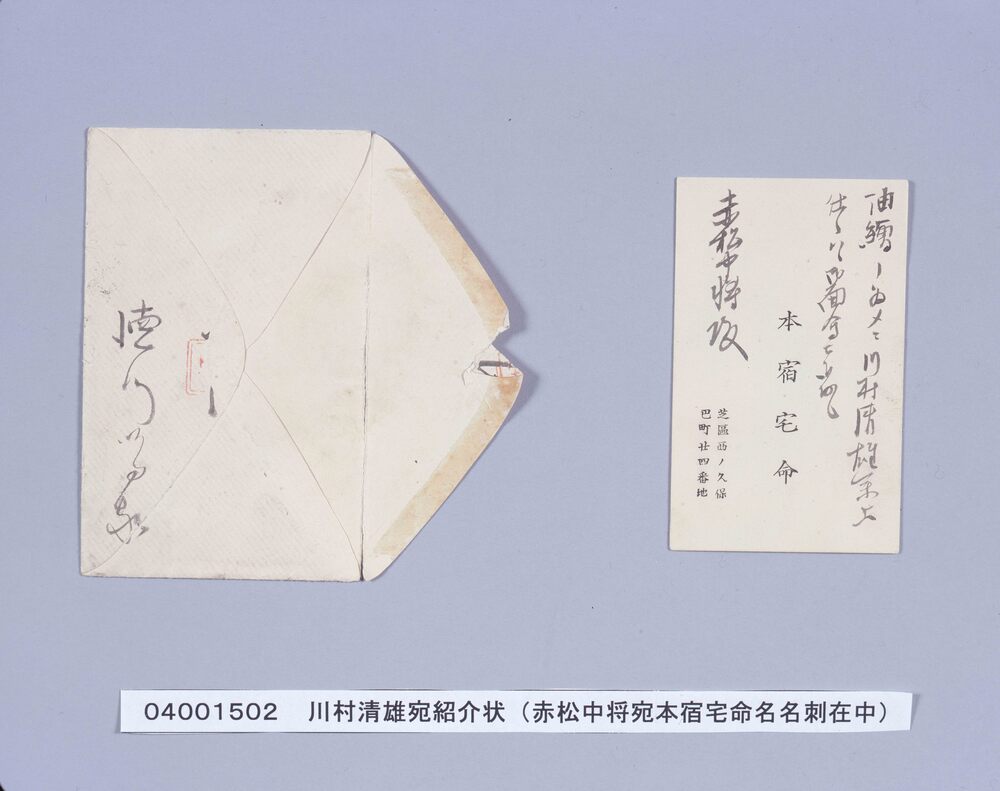 油繪ノ為メニ川村清雄系上
本宿宅命
芝區西ノ久保
巴町廿四番地
赤松中将殿
徳川
04001502 川村清雄宛紹介状(赤松中将宛本宿宅命名名刺在中)